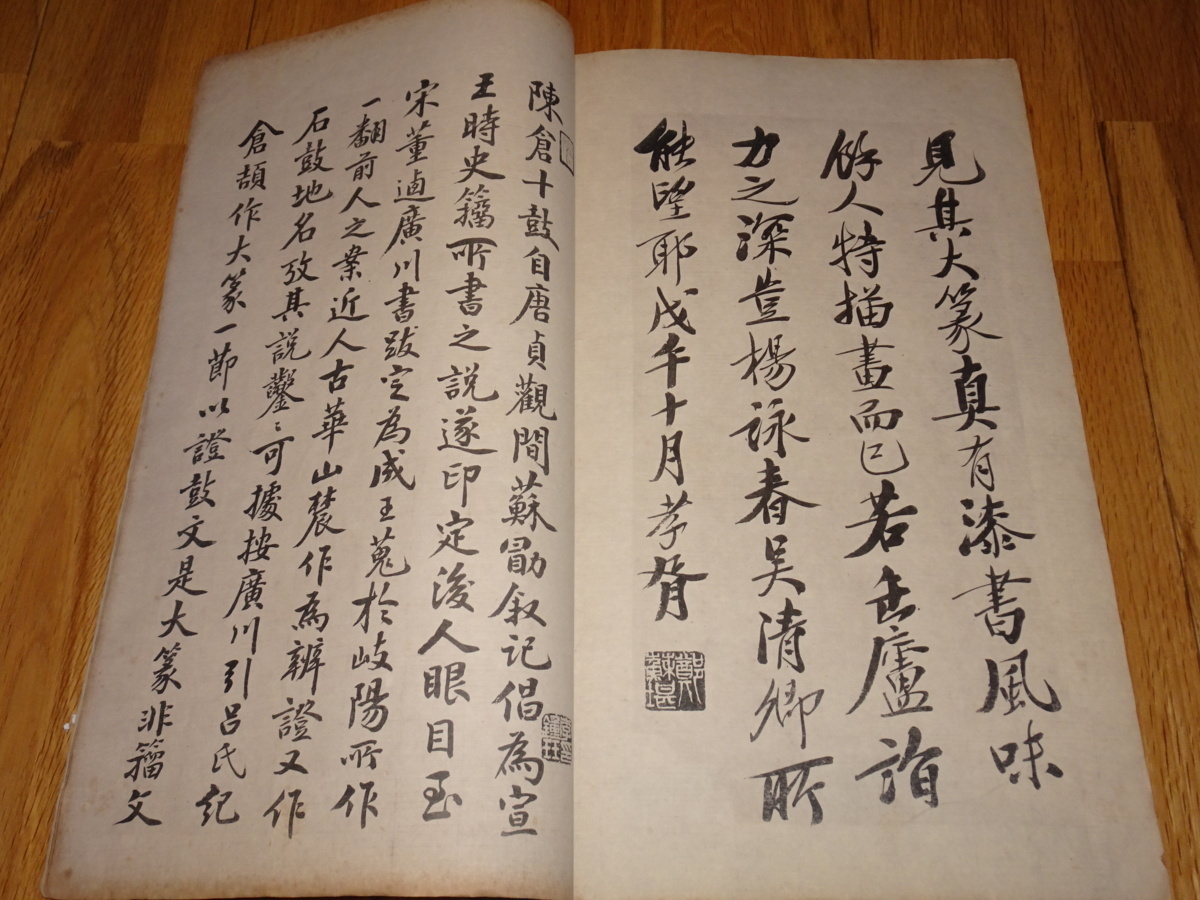 見其大篆真有漆書風味
餘人特描畫而已若缶廬詣
力之深豈楊詠春吳清卿所
能望耶戊午十月孝胥
鄭
蘇堪
陳倉十鼓自唐貞觀間蘇勖叙記倡為宣
王時史籀所書之說遂印定後人眼目至
宋董逌廣川書跋定為成王蒐於岐陽所作
一翻前人之案近人古華山農作為辨證又作
石鼓地名攷其說鑿〻可據按廣川引呂氏紀
倉頡作大篆一節以證鼓文是大篆非籀文